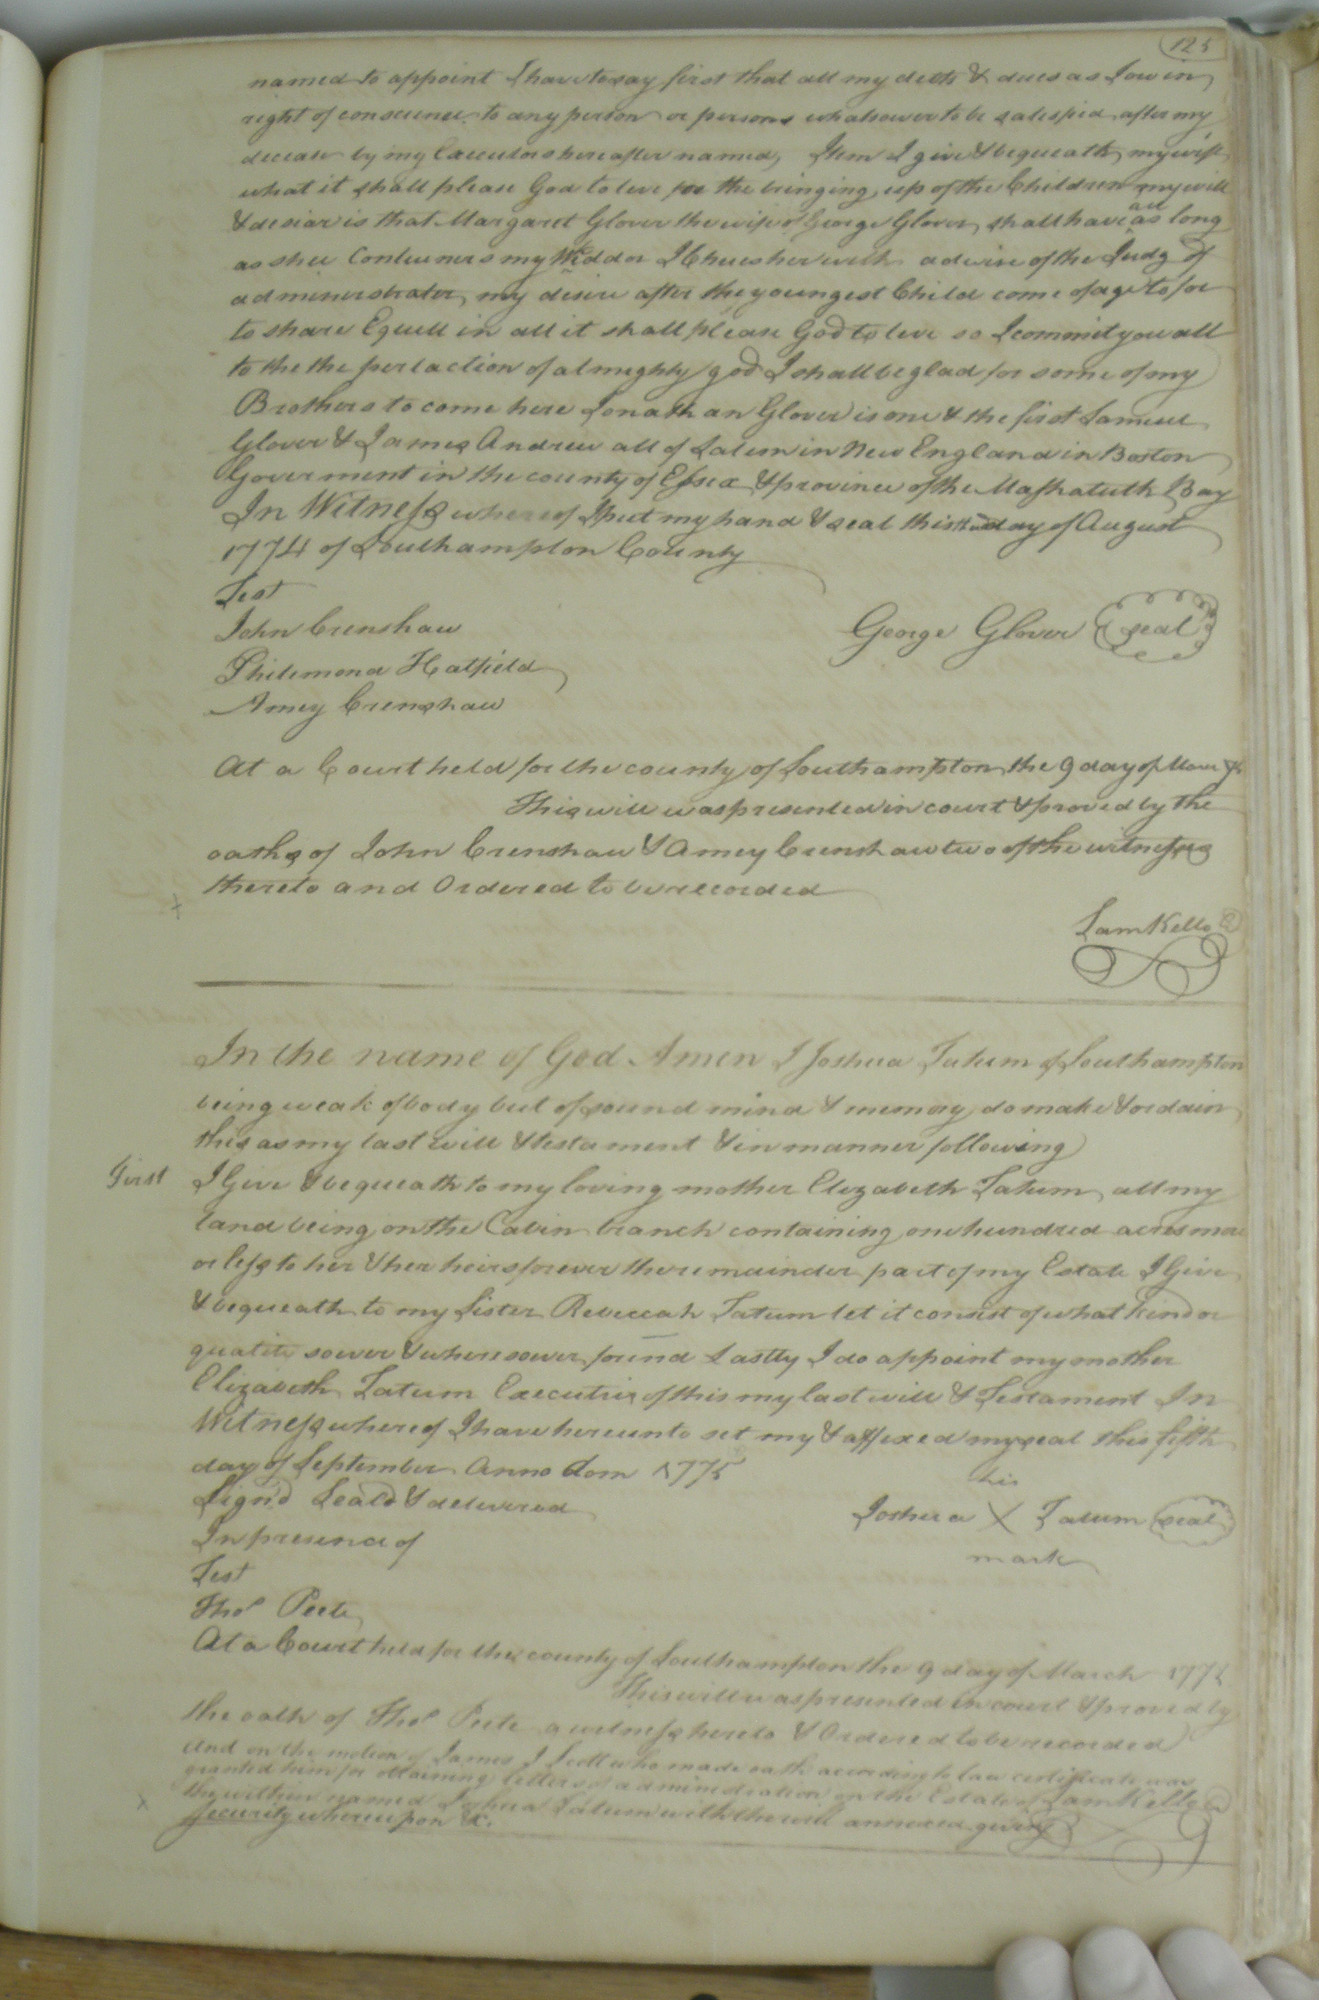 125
named to appoint I have to say first that all my debts & dues as I ow in
right of conscience to any person or persons whatsower to be satisfied after my
decease by my Executors hereafter named, Item I give & bequeath my wife
what it shall please God to leve for the bringing up of the Children my will
& desiar is that Margaret Glover the wife of George Glover shall have all as long
as shee Contenners my Widdor I Chues her with advise of the Judg of
administrater, my desire after the youngest Child come of age to for
to share Equell in all it shall please God to leve so I commit you all
to the the pertaction of almighty god I shall be glad for some of my
Brothers to come here Jonathan Glover is one & the first Samuel
Glover & James Andrew all of Salem in New England in Boston
Goverment in the county of Essex & province of the Mashatuth Bay
In Witness whereof I put my hand & seal this day of August
1774 of Southampton County
Test
John Crenshaw
George Glover (seal)
Philemond Hatfield
Amey Crenshaw
At a Court held for the county of Southampton the 9 day of
This will was presented in court & proved by the
oaths of John Crenshaw & Amey Crenshaw two of the witnesses
thereto and Ordered to be recorded
Sam Kello
In the name of God Amen I Joshua Tatum of Southampton
being weak of body but of sound mind & memory do make & ordain
this as my last will & testament & in manner following
First I Give & bequeath to my loving mother Elizabeth Tatum all my
land being on the Cabin branch containing one hundred acres more
or less to her & her heirs forever the remainder part of my Estate I Give
& bequeath to my Sister Rebeccah Tatum let it consist of what kind or
quality soever & wheresoever found Lastly I do appoint my mother
Elizabeth Tatum Executrix of this my last will & Testament In
Witness whereof I have hereunto set my & affixed my seal this fifth
day of September Anno Dom 1775
his
Sign'd Seal'd & delivered
Joshua X Tatum (seal)
In presence of
mark
Test
Thos Peete
At a Court held for the county of Southampton the 9 day of March 177
This will was presented in court & proved by
the oath of Thos Peete a witness hereto & Ordered to be recorded
And on the motion of James J Scott who made oath according to law certificate was
granted him for obtaining letters of administration on the Estate of
Sam Kello
the within named Joshua Tatum with the will annexed giving
Security whereupon &c.